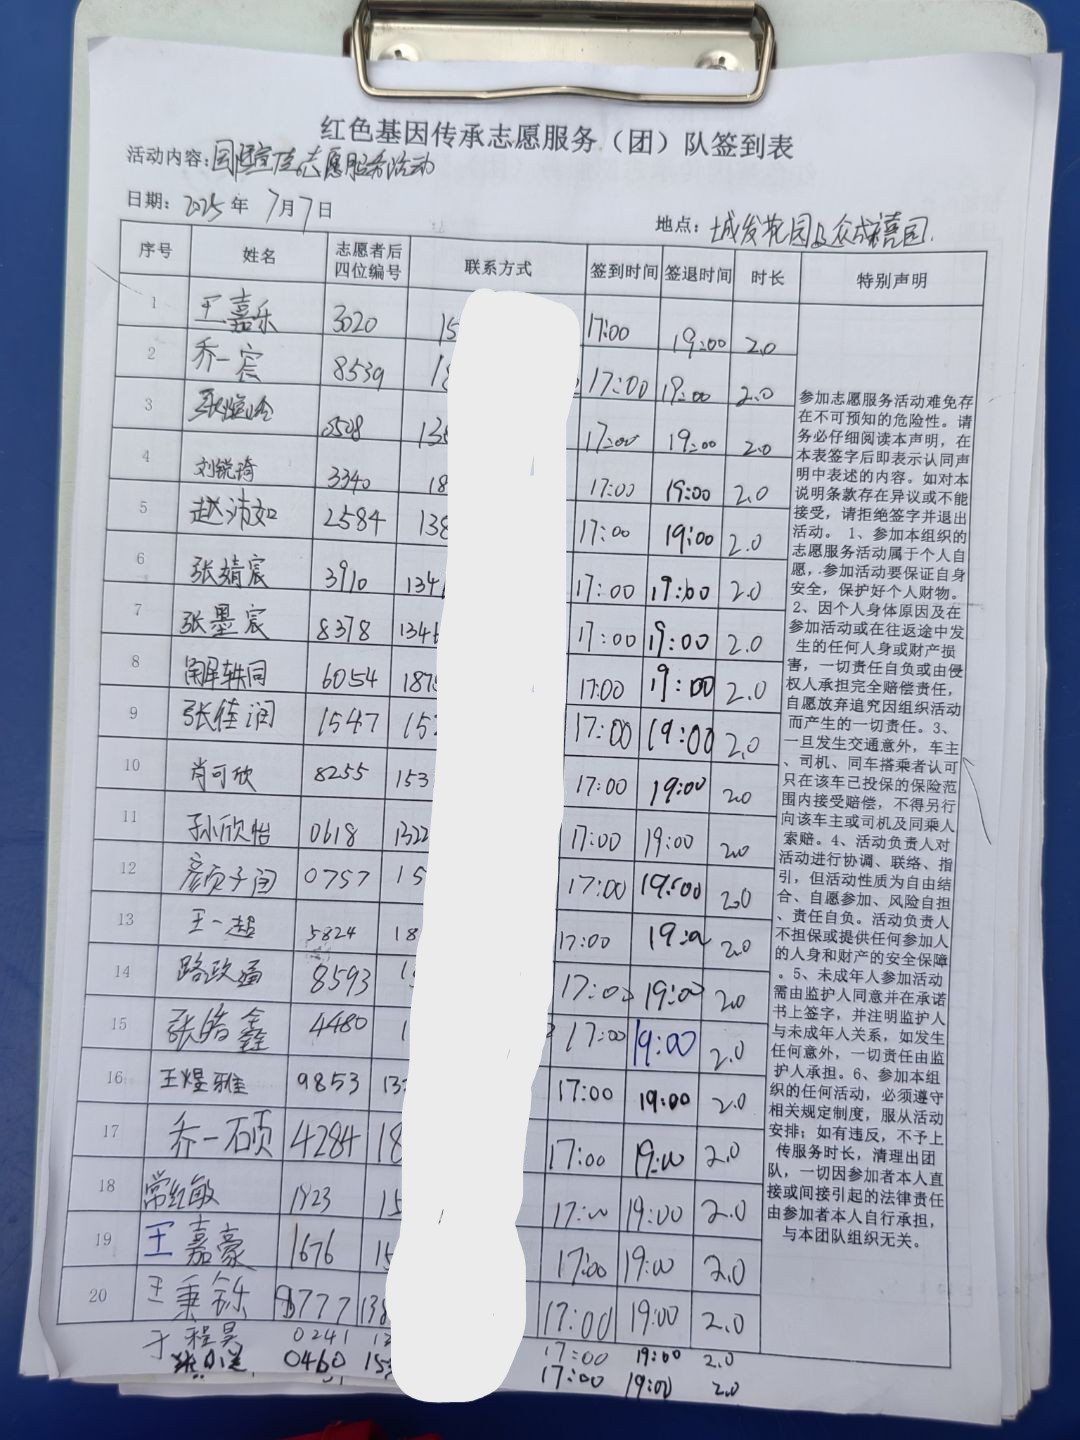 红色基因传承志愿服务（团）队签到表
活动内容：志愿服务活动
日期：2025年 7月7日
地点：城发花园及众成禧园
序号 姓名 志愿者后四位编号 联系方式 签到时间 签退时间 时长 特别声明
1 王嘉乐 3020 15 17:00 19:00 2.0
2 乔一宸 8539 18 17:00 19:00 2.0
3 张 17:00 19:00 2.0
4 刘锐琦 3340 18 17:00 19:00 2.0
5 赵沛如 2584 138 17:00 19:00 2.0
6 张婧宸 3910 134 17:00 19:00 2.0
7 张墨宸 8378 134 17:00 19:00 2.0
8 解轶同 6054 187 17:00 19:00 2.0
9 张佳润 1547 15 17:00 19:00 2.0
10 肖可欣 8255 153 17:00 19:00 2.0
11 孙欣怡 0618 1322 17:00 19:00 2.0
12 颜子闰 0757 15 17:00 19:00 2.0
13 王一超 5824 18 17:00 19:00 2.0
14 路政通 8593 17:00 19:00 2.0
15 张皓鑫 4480 1 17:00 19:00 2.0
16 王煜雅 9853 13 17:00 19:00 2.0
17 乔一硕 4284 18 17:00 19:00 2.0
18 常红敏 1923 15 17:00 19:00 2.0
19 王嘉豪 1676 15 17:00 19:00 2.0
20 王秉铄 8777 138 17:00 19:00 2.0
于程昊 0241 17:00 19:00 2.0
张 0460 15 17:00 19:00 2.0
参加志愿服务活动难免存
在不可预知的危险性。请
务必仔细阅读本声明，在
本表签字后即表示认同声
明中表述的内容。如对本
说明条款存在异议或不能
接受，请拒绝签字并退出
活动。 1、参加本组织的
志愿服务活动属于个人自
愿，参加活动要保证自身
安全，保护好个人财物。
2、因个人身体原因及在
参加活动或在往返途中发
生的任何人身或财产损
害，一切责任自负或由侵
权人承担完全赔偿责任，
自愿放弃追究因组织活动
而产生的一切责任。3、
一旦发生交通意外，车主
、司机、同车搭乘者认可
只在该车已投保的保险范
围内接受赔偿，不得另行
向该车主或司机及同乘人
索赔。4、活动负责人对
活动进行协调、联络、指
引，但活动性质为自由结
合、自愿参加、风险自担
、责任自负。活动负责人
不担保或提供任何参加人
的人身和财产的安全保障
。5、未成年人参加活动
需由监护人同意并在承诺
书上签字，并注明监护人
与未成年人关系，如发生
任何意外，一切责任由监
护人承担。6、参加本组
织的任何活动，必须遵守
相关规定制度，服从活动
安排；如有违反，不予上
传服务时长，清理出团
队，一切因参加者本人直
接或间接引起的法律责任
由参加者本人自行承担，
与本团队组织无关。